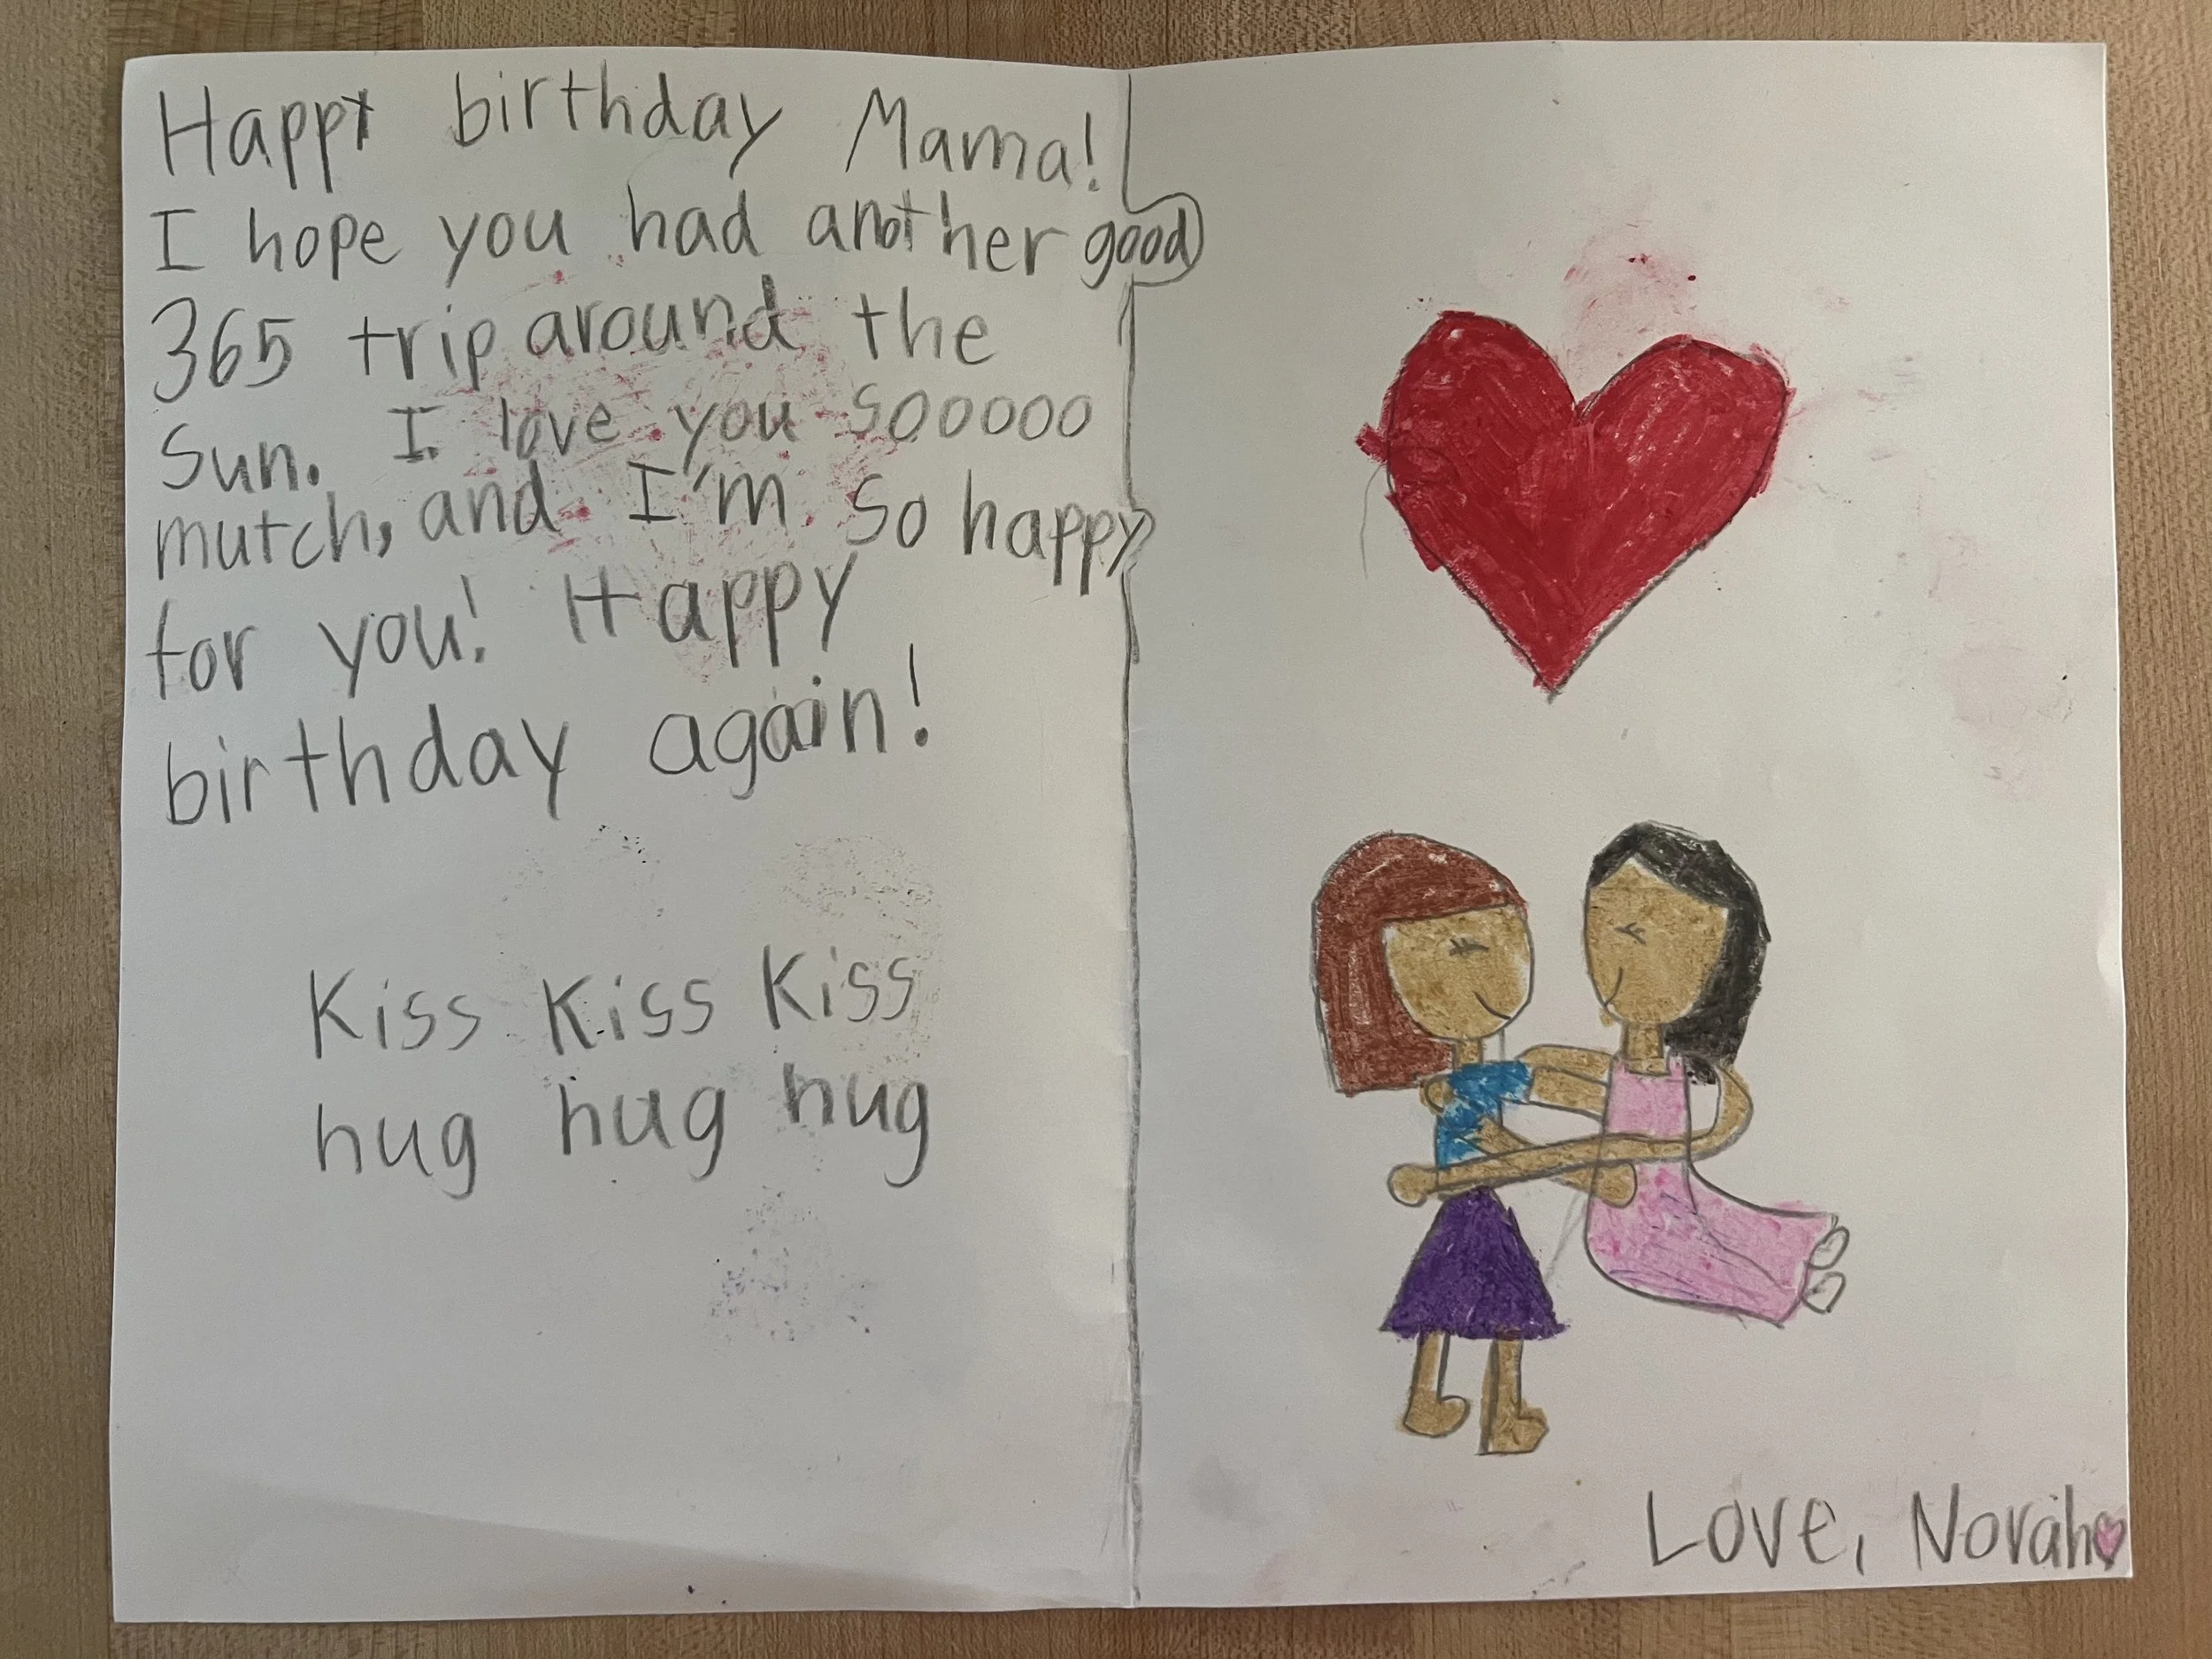 Happy birthday Mama!
I hope you had another good
365 trip around the
Sun. I love you sooooo
mutch, and I'm so happy
for you! Happy
birthday again!
Kiss Kiss Kiss
hug hug hug
Love, Norah